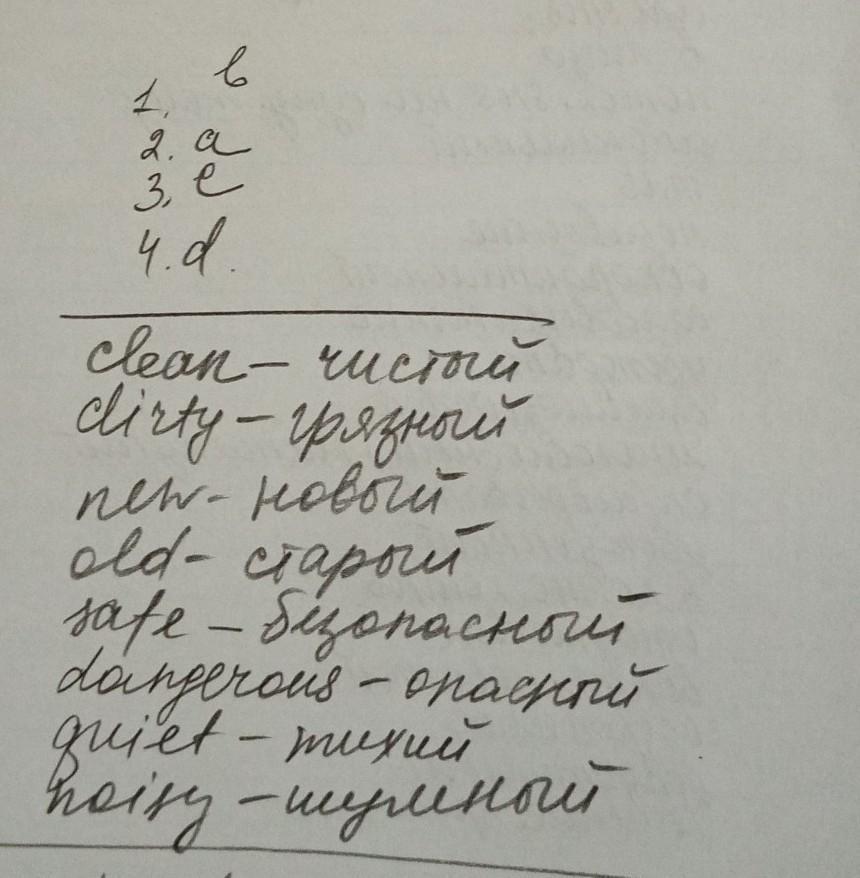 1. b
2. a
3. e
4. d.
clean – чистый
dirty – грязный
new - новый
old - старый
safe – безопасный
dangerous – опасный
quiet – тихий
noisy – шумный